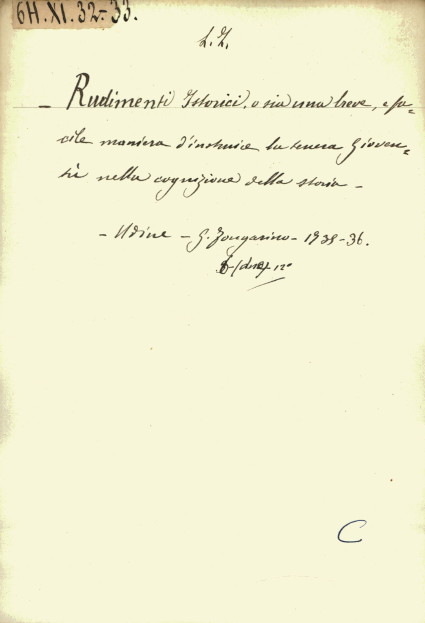 6H.XI.32-33.
L. Z.
— Rudimenti Istorici, o sia una breve, e fa-
cile maniera d'instruire la tenera Gioven-
tù nella cognizione della storia —
— Udine — G.
12°
C